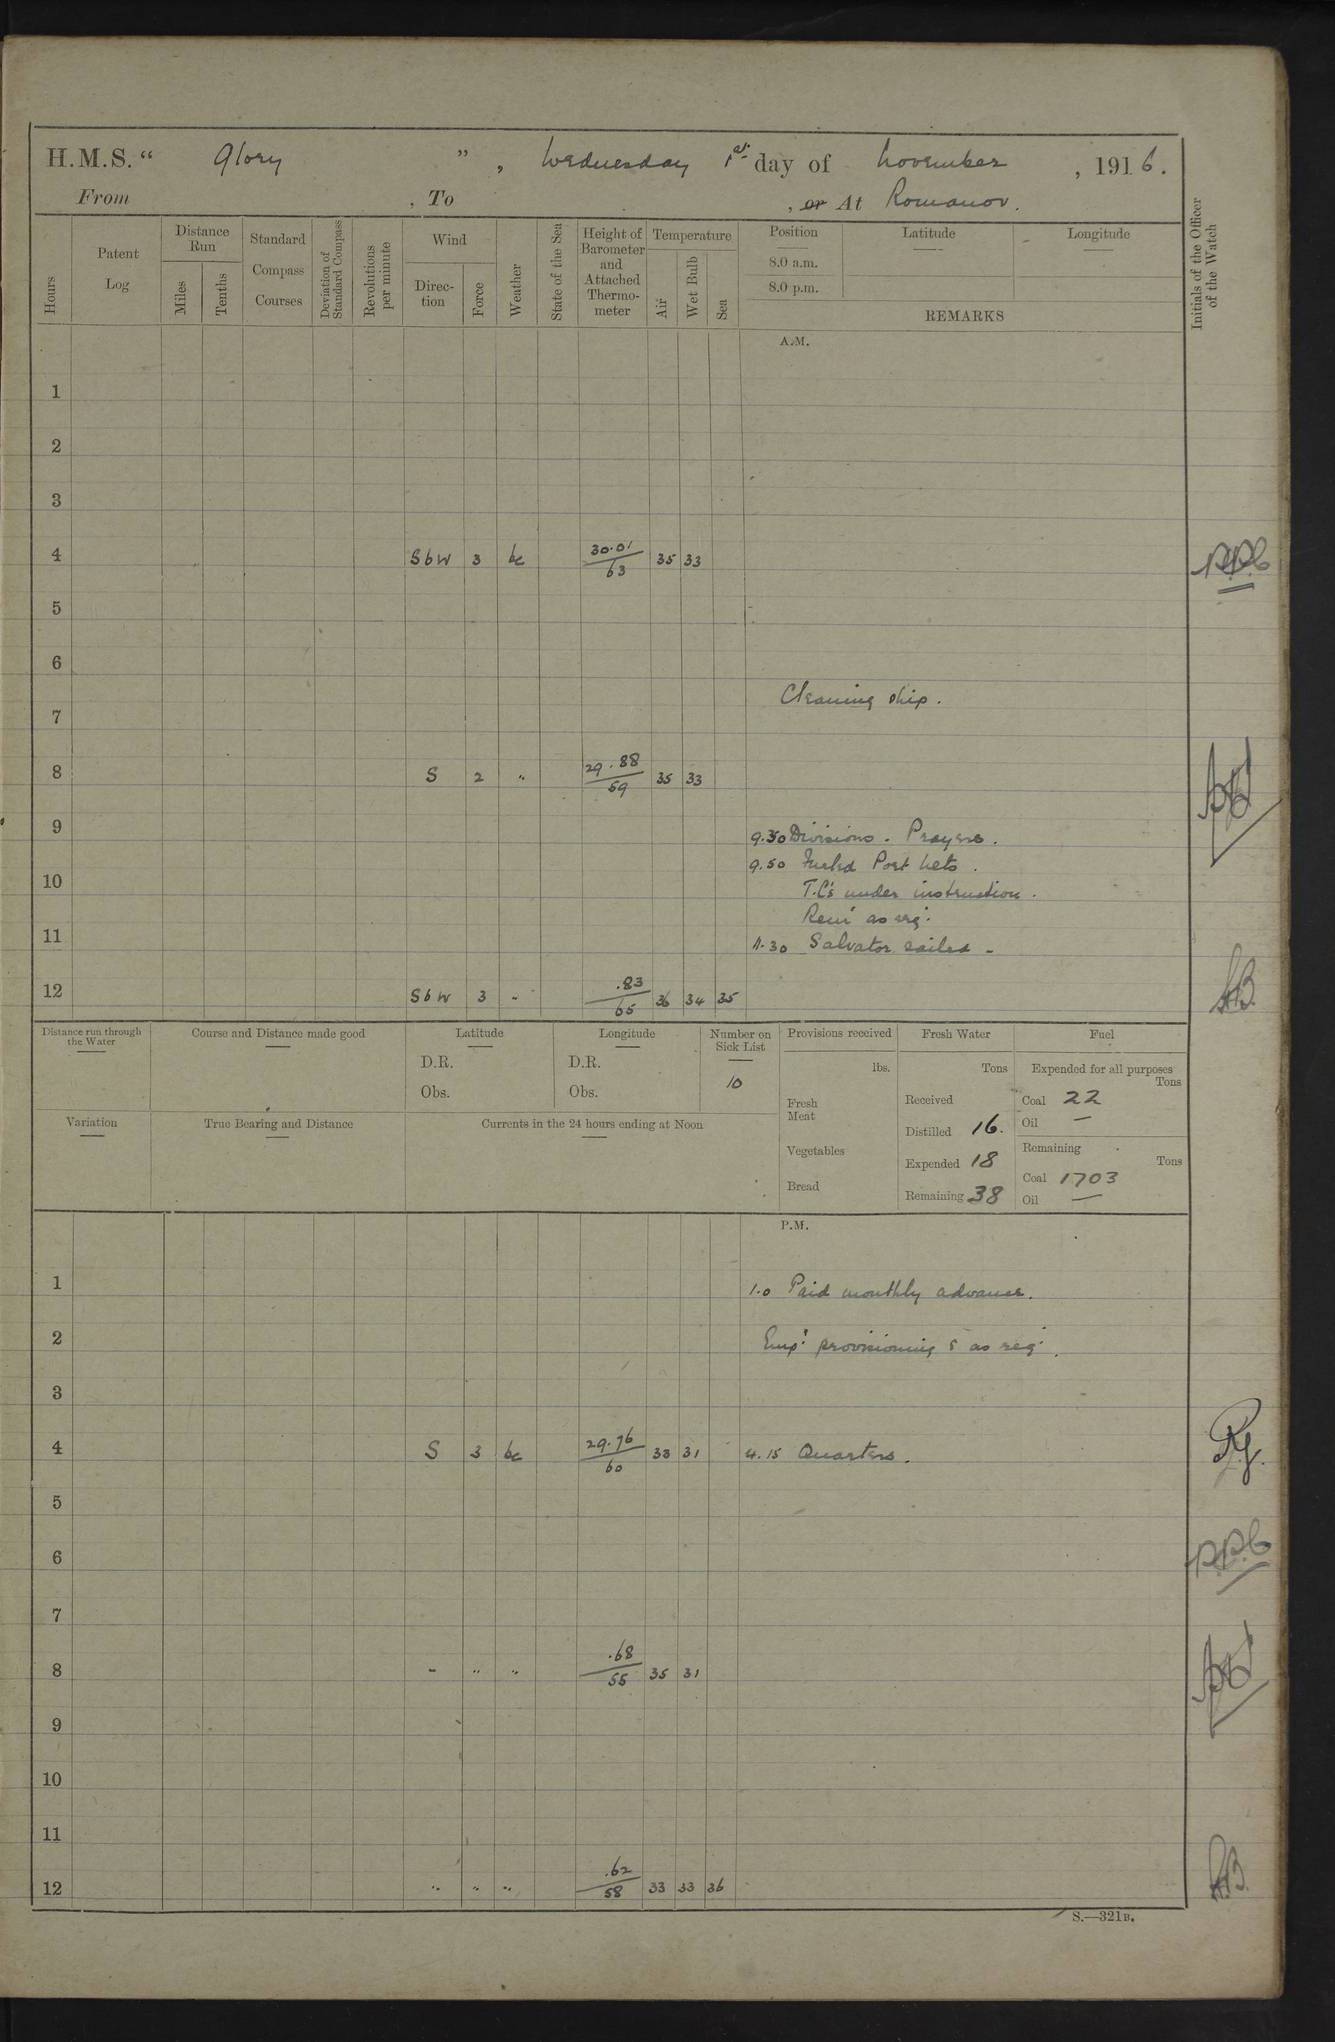 H.M.S. “ Glory ” , Wednesday 1st day of November , 1916.
From , To , or At Romanov.
Hours
Patent Log
Distance Run
Miles
Tenths
Standard Compass Courses
Deviation of Standard Compass
Revolutions per minute
Wind
Direction
Force
Weather
State of the Sea
Height of Barometer and Attached Thermometer
Temperature
Air
Wet Bulb
Sea
Position Latitude Longitude
8.0 a.m.
8.0 p.m.
REMARKS
Initials of the Officer of the Watch
A.M.
1
2
3
4 SbW 3 bc 30.01/63 35 33
5
6
Cleaning ship.
7
8 S 2 " 29.88/59 35 33
9
9.30 Divisions. Prayers.
9.50 Furled Port nets.
10 T.C's under instruction.
Remr as req.
11 11.30 Salvator sailed -
12 SbW 3 " .83/65 36 34 35
Distance run through the Water
Course and Distance made good
Latitude
D.R.
Obs.
Longitude
D.R.
Obs.
Number on Sick List
10
Provisions received
lbs.
Fresh Meat
Vegetables
Bread
Fresh Water
Tons
Received
Distilled 16.
Expended 18
Remaining 38
Fuel
Expended for all purposes
Tons
Coal 22
Oil —
Remaining
Tons
Coal 1703
Oil —
Variation
True Bearing and Distance
Currents in the 24 hours ending at Noon
P.M.
1 1.0 Paid monthly advance.
2 Emp. provisioning & as req.
3
4 S 3 bc 29.76/60 33 31 4.15 Quarters.
5
6
7
8 " " " .68/55 35 31
9
10
11
12 " " " .62/58 33 33 36
S.—321B.